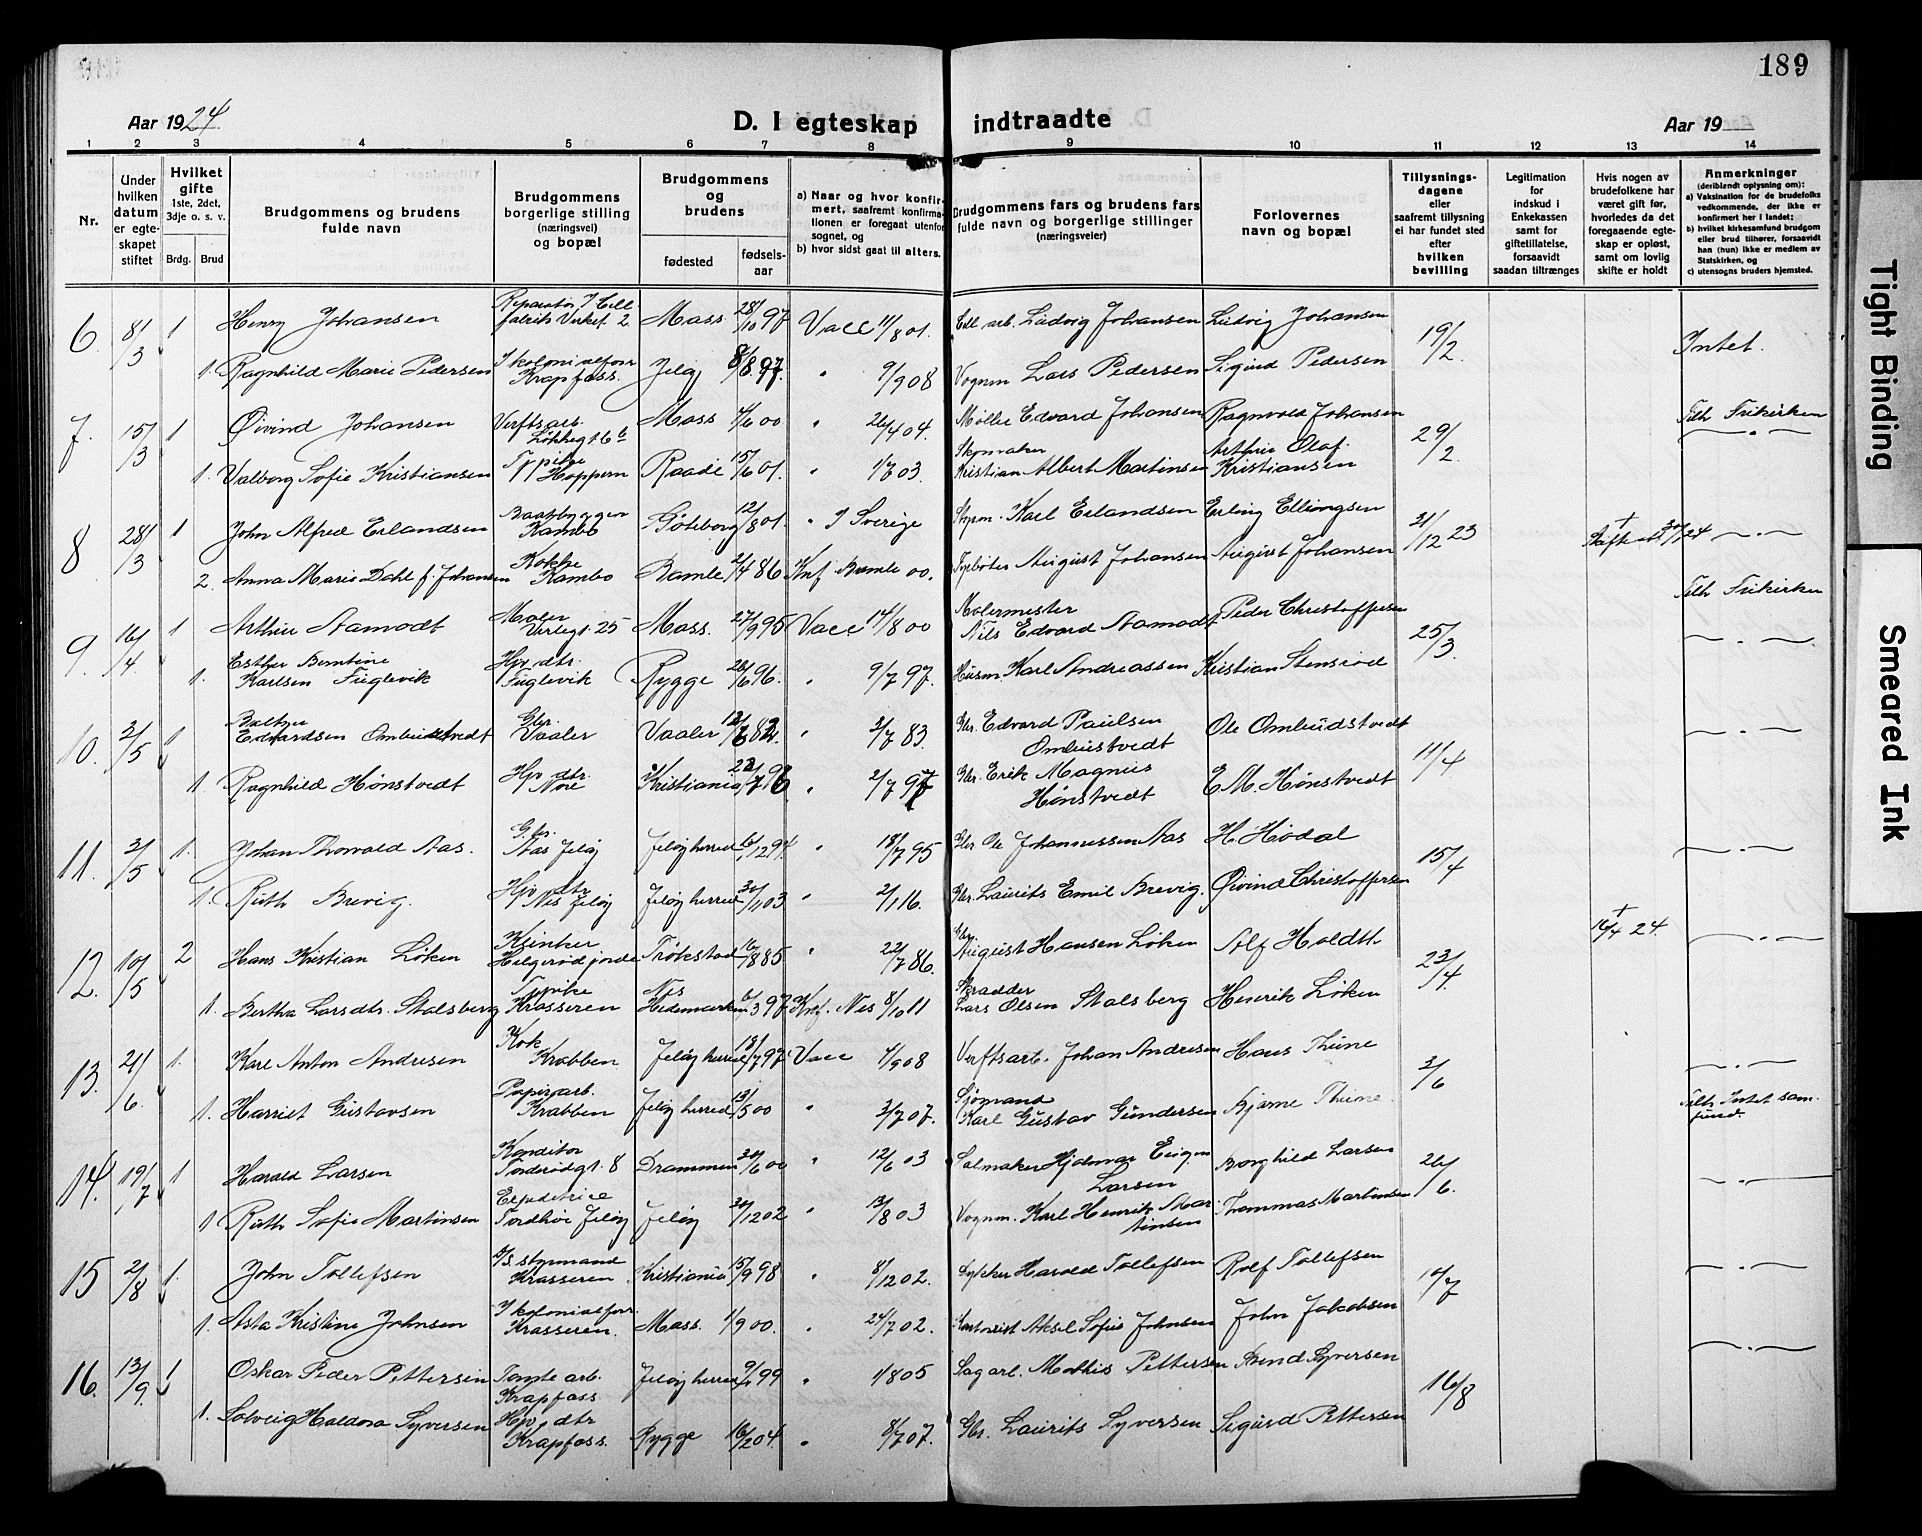 189
Aar 1924.
D. I egteskap indtraadte
Aar 19
1 2 3 4 5 6 7 8 9 10 11 12 13 14
Nr.
Under hvilken datum er egteskapet stiftet
Hvilket gifte 1ste, 2det, 3dje o. s. v.
Brdg. Brud
Brudgommens og brudens fulde navn
Brudgommens borgerlige stilling (næringsvei) og bopæl
Brudgommens og brudens
fødested
fødselsaar
a) Naar og hvor konfirmert, saafremt konfirmationen er foregaat utenfor sognet, og
b) hvor sidst gaat til alters.
Brudgommens fars og brudens fars fulde navn og borgerlige stillinger (næringsveier)
Forlovernes navn og bopæl
Tillysningsdagene eller saafremt tillysning ei har fundet sted efter hvilken bevilling
Legitimation for indskud i Enkekassen samt for giftetillatelse, forsaavidt saadan tiltrænges
Hvis nogen av brudefolkene har været gift før, hvorledes da det foregaaende egteskap er opløst, samt om lovlig skifte er holdt
Anmerkninger (deriblendt oplysning om):
a) Vaksination for de brudefolks vedkommende, der ikke er konfirmert her i landet;
b) hvilket kirkesamfund brudgom eller brud tilhører, forsaavidt han (hun) ikke er medlem av Statskirken, og
c) utensogns bruders hjemsted.
6 8/3 1 Henry Johansen Reparatør I Cell. fabrik Verket 2 Moss 28/10 97 Vacc 11/8 01. Cell. arb. Ludvig Johansen Ludvig Johansen 19/2. Intet.
1. Ragnhild Marie Pedersen I kolonialforr Krapfoss. Jeløy 8/8.97. " 9/9 08 Vognm Lars Pedersen Sigurd Pedersen
7. 15/3 1 Øivind Johansen Verftsarb. Løkkegt 6 b Moss 4/6 00 " 26/4 04. Møller Edvard Johansen Ragnvald Johansen 29/2 Tilh Frikirken
1. Valborg Sofie Kristiansen Hoppern Raade 15/6 01. " 1/7 03. Kristian Albert Martinsen Arthur Olaf Kristiansen
8 28/3 1 John Alfred Erlandsen Baatbygger Kambo Göteborg 12/8 01. " I Sverige Styrm. Karl Erlandsen Erling Ellingsen 31/12 23
2. Anna Marie Dahl f. Johansen Kokke Kambo Bamle 2/4 86 Knf. Bamle 00. August Johansen August Johansen Tilh Frikirken
9. 16/4 1 Arthur Aamodt Maler Verlegt. 25 Moss. 27/9 95 Vacc 14/8 00 Malermester Nils Edvard Aamodt Peder Christoffersen 25/3.
1. Esther Berntine Karlsen Fuglevik Hpr dtr. Fuglevik Rygge 26/6 96. " 9/7 97. Husm. Karl Andreassen Kristian Stensrød
10. 3/5 1 Edvardsen Ombudstvedt Gbr. Vaaler Vaaler " 3/7 83. Gbr. Edvard Paulsen Ombustvedt Ole Ombudstvedt 11/4
1. Ragnhild Hønstvedt Hpr dtr. Nore Kristiania " 2/7 97 Gbr. Erik Magnus Hønstvedt E. M. Hønstvedt
11. 3/5 1. Johan Thorvald Aas. Gbr. Aas Jeløy Jeløy herred 6/12 94 " 18/7 95 Gbr Ole Johannessen Aas H. Hødal 15/4
1. Ruth Brevig. Hpr dtr Nes Jeløy Jeløy herred 30/1 03 " 2/1 16. Gbr. Laurits Emil Brevig. Øivind Christoffersen
12. 10/5 2 Hans Kristian Løken Helgerødjordet Trøkstad 16/8 85 " 22/7 86. August Hansen Løken Alf Holdth 23/4 † 16/4 24.
1. Bertha Larsdtr. Stalsberg Krasseren Nes Hedemarken 6/3 97 Knf. Nes 8/10 11 Skradder Lars Olsen Stalsberg Henrik Løken
13. 21/6 1. Karl Anton Andresen Kok Krabben Jeløy herred 13/7 97 Vacc 4/9 08 Verftsarb. Johan Andresen Hans Thune 3/6
1. Harriet Gustavsen Papirarb. Krabben Jeløy herred 13/5 00 " 3/7 07. Sjømand Karl Gustav Gundersen Bjarne Thune. Tilh Intet samfund.
14. 19/7 1 Harald Larsen Konditor Tordenrødgt. 8 Drammen 30/6 00 " 12/6 03 Salmaker Hjalmar Eugen Larsen Borghild Larsen 26/6.
1 Ruth Sofie Martinsen Expeditrice Tordhoi Jeløy Jeløy 30/12 02 " 13/8 03 Vognm. Karl Henrik Martinsen Thommas Martinsen
15 2/8 1. John Tollefsen D/S. styrmand Krasseren Kristiania 15/9 98 " 8/12 02. Harald Tollefsen Rolf Tollefsen 10/7
1. Asta Kristine Johnsen I kolonialforr. Krasseren. Moss. 1/9 00. " 24/7 02. Aksel Sofus Johnsen John Jakobsen
16. 13/9 1 Oskar Peder Pettersen Tomtearb. Krapfoss Jeløy herred 9/1 99 " 1/8 05 Sagarb. Mathis Pettersen Syversen 16/8
1. Solveig Haldora Syversen Hpr dtr Krapfoss. Rygge 16/2 04. " 8/7 07. Gbr. Laurits Syversen Sigurd Pettersen
Tight Binding
Smeared Ink